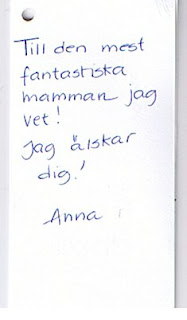 Till den mest
fantastiska
mamman jag
vet!
Jag älskar
dig!
Anna